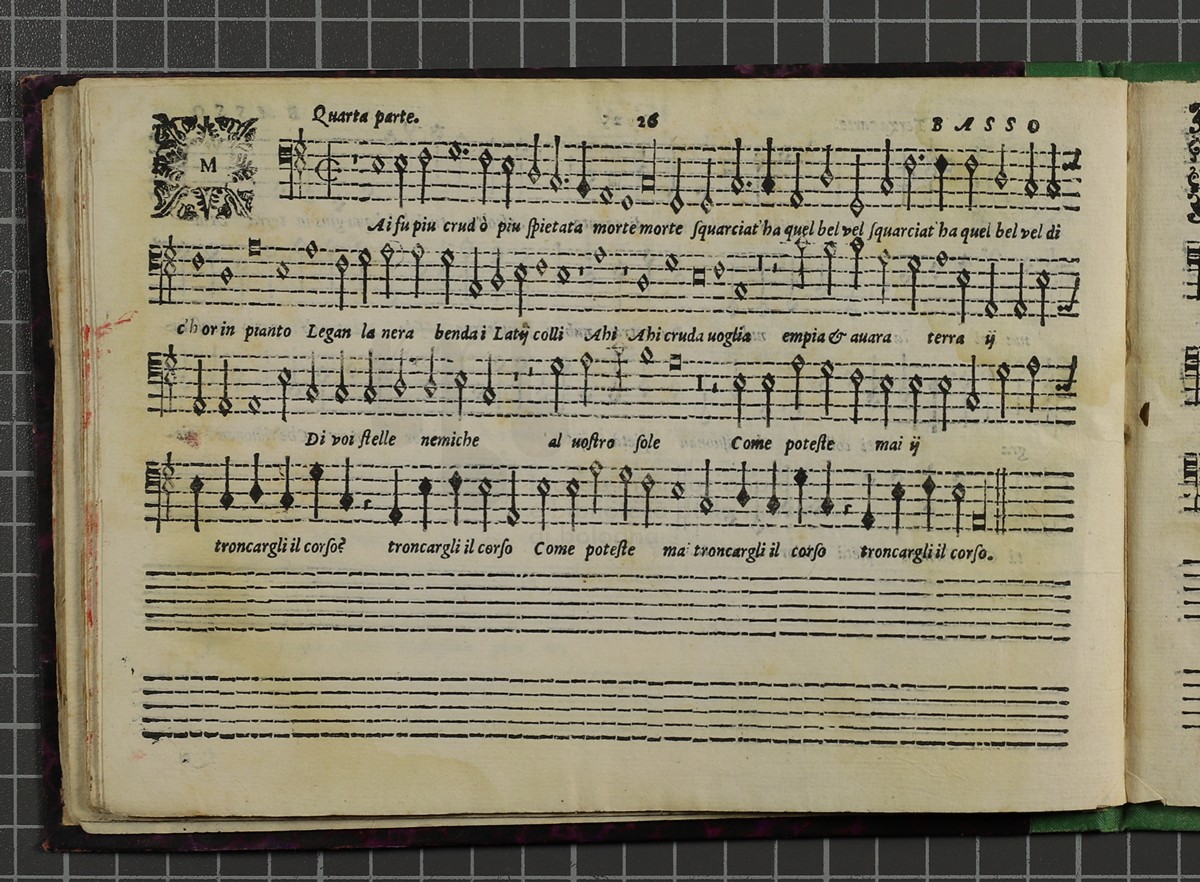 Quarta parte. 26 BASSO
M
Ai fu piu crud ò piu spietata morte morte squarciat' ha quel bel vel squarciat' ha quel bel vel di
ch or in pianto Legan la nera benda i Latij colli Ahi Ahi cruda uoglia empia & auara terra ij
Di voi stelle nemiche al uostro sole Come poteste mai ij
troncargli il corso? troncargli il corso Come poteste mai troncargli il corso troncargli il corso.